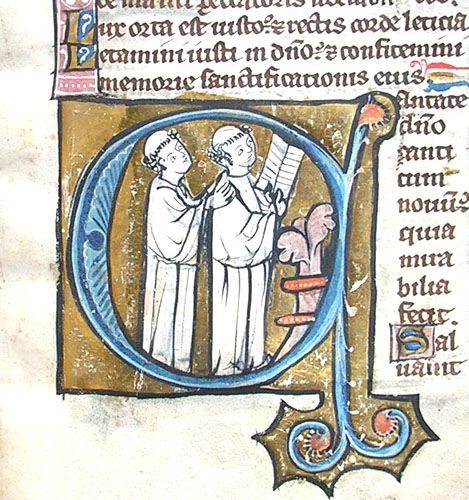 de manu peccatoris liberabit eos.
Lux orta est iusto: ⁊ rectis corde leticia
Letamini iusti in dño: ⁊ confitemini
memorie sanctificationis eius
Cantate
dño
canti
cum
nouum
quia
mira
bilia
fecit.
Sal
uauit